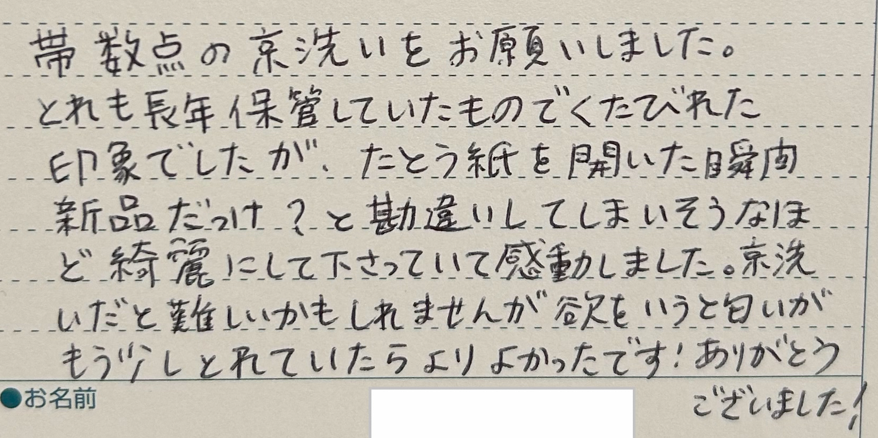 帯数点の京洗いをお願いしました。
とれも長年保管していたものでくたびれた
印象でしたが、たとう紙を開いた瞬間
新品だっけ？と勘違いしてしまいそうなほ
ど綺麗にして下さっていて感動しました。京洗
いだと難しいかもしれませんが欲をいうと匂いが
もう少しとれていたらよりよかったです！ありがとう
ございました！
●お名前